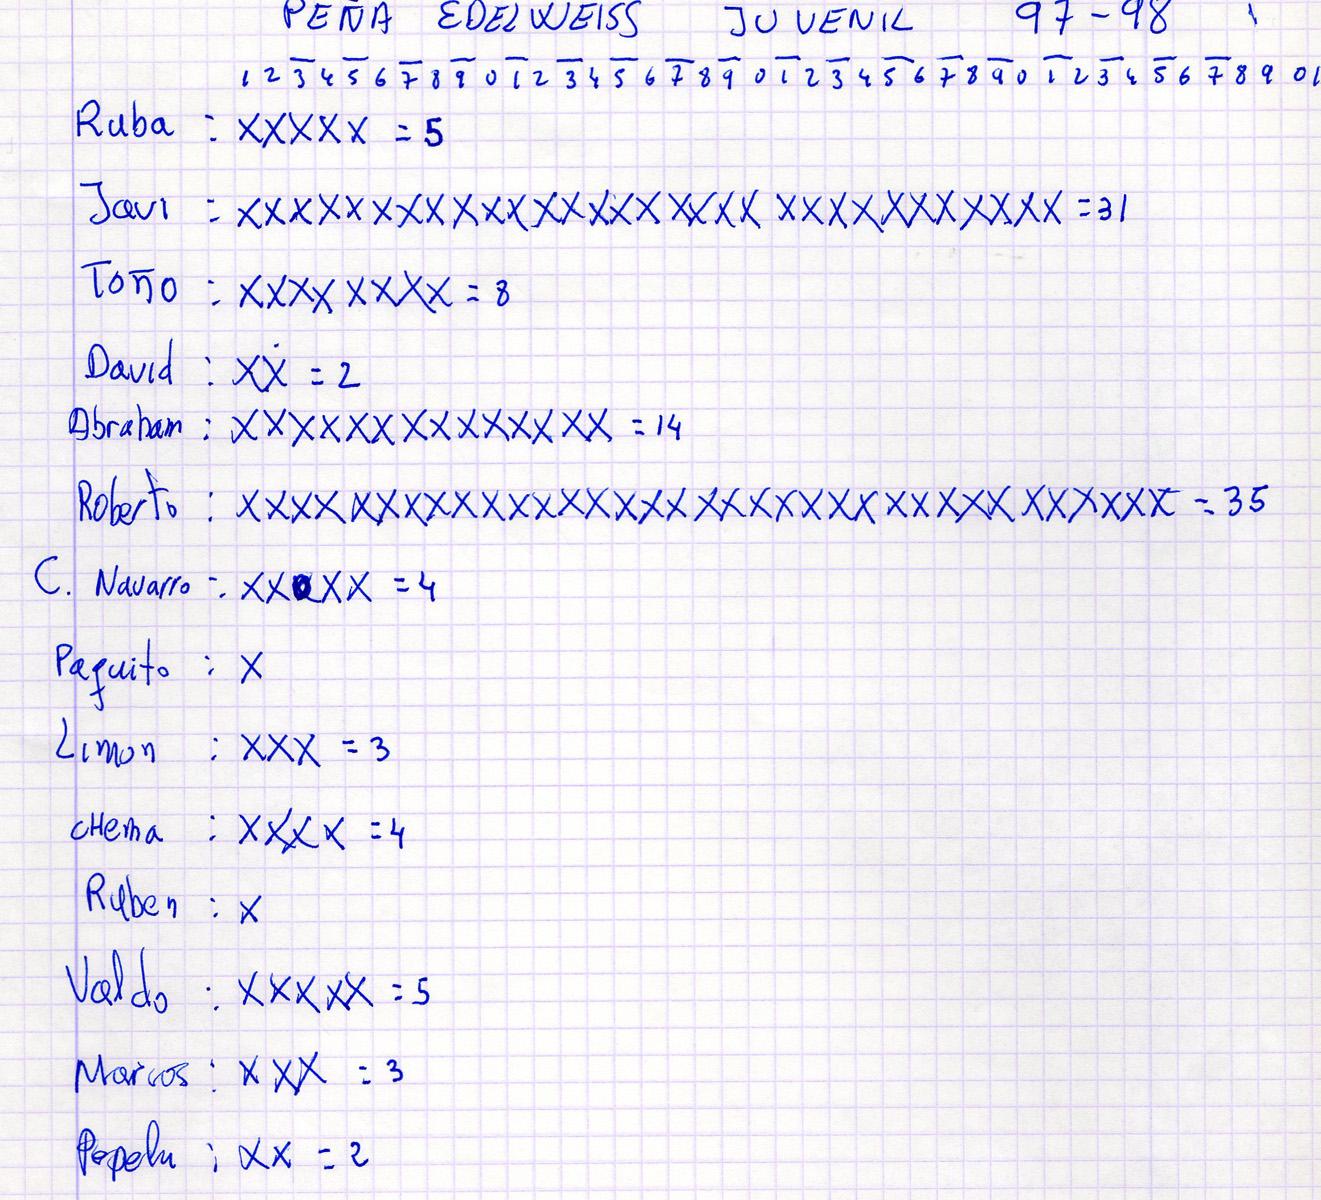 PEÑA EDELWEISS JUVENIL 97-98
1 2 3 4 5 6 7 8 9 0 1 2 3 4 5 6 7 8 9 0 1 2 3 4 5 6 7 8 9 0 1 2 3 4 5 6 7 8 9 0 1
Ruba : XXXXX = 5
Javi : XXXXXXXXXXXXXXXXXXXXXXXXXXXXXXX = 31
Toño : XXXXXXXX = 8
David : XX = 2
Abraham : XXXXXXXXXXXXXX = 14
Roberto : XXXXXXXXXXXXXXXXXXXXXXXXXXXXXXXXXXX = 35
C. Navarro : XX XX = 4
Paquito : X
Limon : XXX = 3
cHema : XXXX = 4
Ruben : X
Valdo : XXXXX = 5
Marcos : XXX = 3
Pepelu : XX = 2